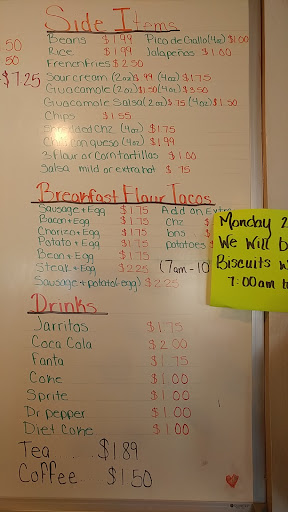 Side Items
50
50
$7.25
Beans $1.99 Pico de Gallo (4oz) $1.00
Rice $1.99 Jalapeños $1.00
French Fries $2.50
Sour cream (2oz) $.99 (4oz) $1.75
Guacamole (2oz) $1.50 (4oz) $3.50
Guacamole Salsa (2oz) $.75 (4oz) $1.50
Chips $1.55
Shredded Chz (4oz) $1.75
Chili con queso (4oz) $1.99
3 Flour or Corn tortillas $1.00
Salsa mild or extra hot $.75
Breakfast Flour Tacos
Sausage + Egg $1.75 Add on Extra
Bacon + Egg $1.75 Chz $
Chorizo + Egg $1.75 bns $
Potato + Egg $1.75 potatoes $
Bean + Egg $1.75
Steak + Egg $2.25 (7am - 10
Sausage + potato (egg) $2.25
Monday 2
We Will b
Biscuits w
7:00am t
Drinks
Jarritos $1.75
Coca Cola $2.00
Fanta $1.75
Coke $1.00
Sprite $1.00
Dr. pepper $1.00
Diet Coke $1.00
Tea ... $1.89
Coffee $1.50